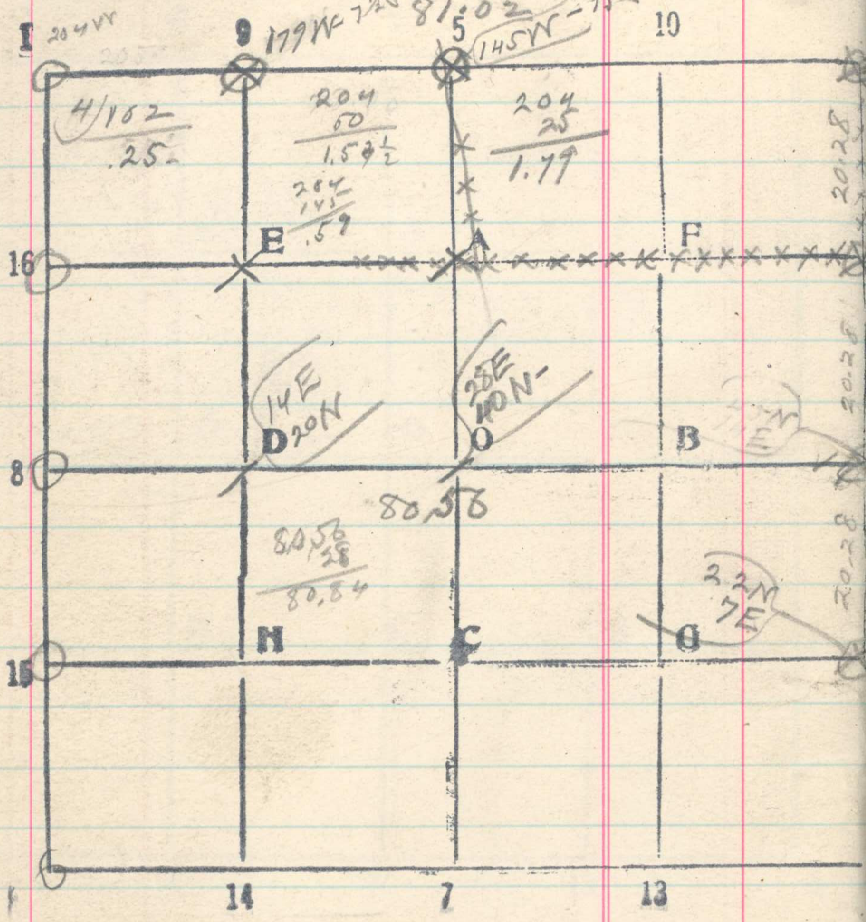 1 204W 9 179W 81.02 5 145W 10
4/102
.25
204
50
1.53½
204
145
.59
204
25
1.79
20.28
16 E A F
20.28
14E
20N
28E
40N
8 D O B
80.56
80.56
28
80.84
20.28
22N
7E
15 H C G
14 7 13